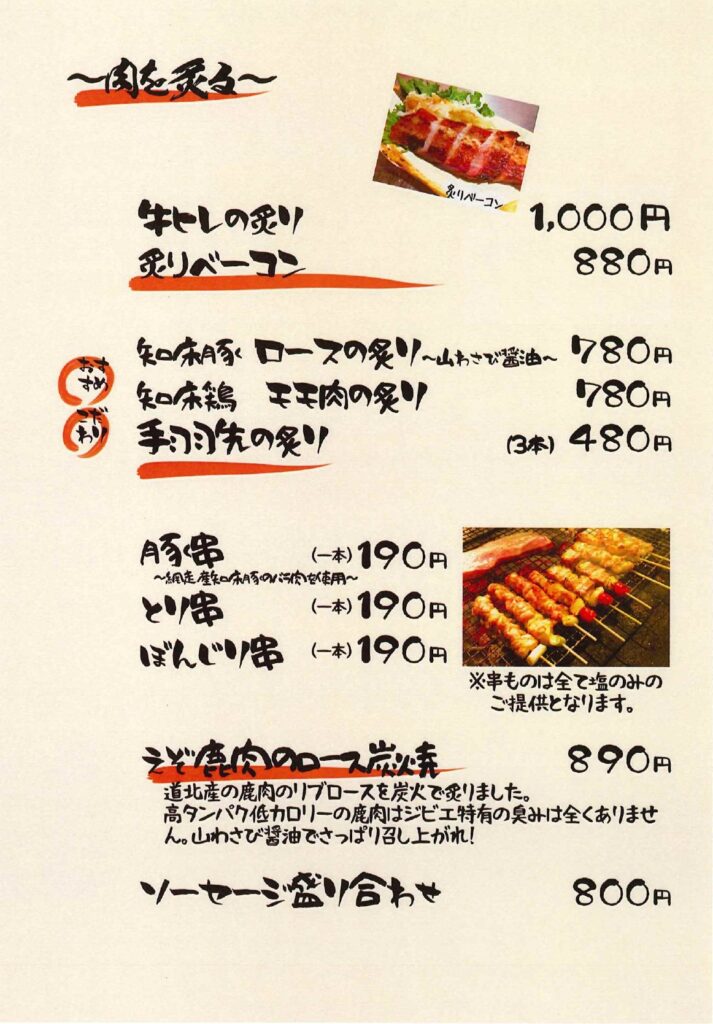 ～肉を炙る～
炙りベーコン
牛ヒレの炙り 1,000円
炙りベーコン 880円
おすすめ
こだわり
知床豚 ロースの炙り～山わさび醤油～ 780円
知床鶏 モモ肉の炙り 780円
手羽先の炙り (3本) 480円
豚串 (一本) 190円
～網走産知床豚のバラ肉を使用～
とり串 (一本) 190円
ぼんじり串 (一本) 190円
※串ものは全て塩のみの
ご提供となります。
えぞ鹿肉のロース炭火焼 890円
道北産の鹿肉のリブロースを炭火で炙りました。
高タンパク低カロリーの鹿肉はジビエ特有の臭みは全くありませ
ん。山わさび醤油でさっぱり召し上がれ!
ソーセージ盛り合わせ 800円